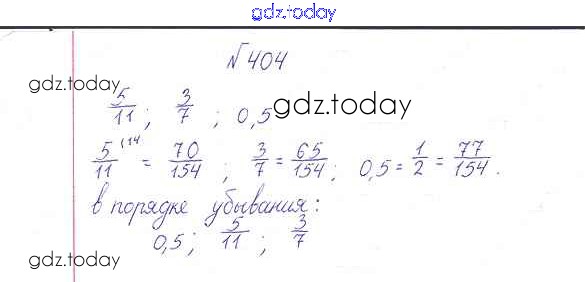 gdz.today
№404
gdz.today
5/11; 3/7; 0,5
gdz.today
5/11 (14 = 70/154; 3/7 = 65/154; 0,5 = 1/2 = 77/154.
в порядке убывания:
0,5; 5/11; 3/7
gdz.today